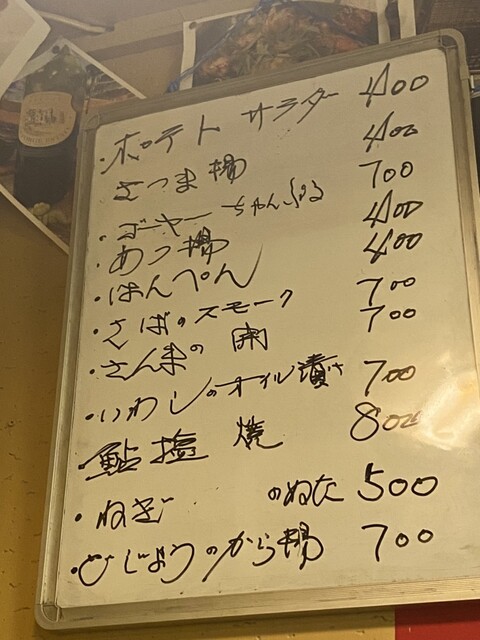 ・ポテトサラダー 400
さつま揚 400
・ゴーヤーちゃんぷる 700
・あつ揚 400
・はんぺん 400
・さばのスモーク 700
・さんまの開 700
・いわしのオイル漬け 700
・鮎塩焼 800
・ねぎのぬた 500
・どじょうのから揚 700